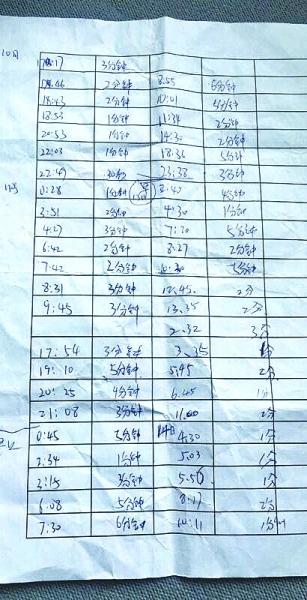 10月
3分钟
18:46 2分钟 8:55 6分钟
18:43 2分钟 10:01 4分钟
18:53 1分钟 11:34 2分钟
20:53 1分钟 14:30 2分钟
22:03 1分钟 18:36 5分钟
22:49 30秒 23:38 3分钟
0:28 1分钟 2:40 4分钟
3:51 2分钟 4:30 1分钟
4:27 3分钟 7:20 5分钟
6:42 2分钟 8:27 2分钟
7:42 2分钟 10:30
8:31 3分钟 12.45. 2分
9:45 3分钟 13.35 2分
2.32 3分
17:54 3分钟 3.35 1分
19:10 5分钟 5.45 2分
20:25 4分钟 6.45 1分
21:08 3分钟 11.00 2分
0:45 2分钟 4.30 1分
2:34 1分钟 5.03 1分
3:15 3分钟 5.56 1分
6:08 5分钟 8:17 2分
7:30 6分钟 10:11 1分钟